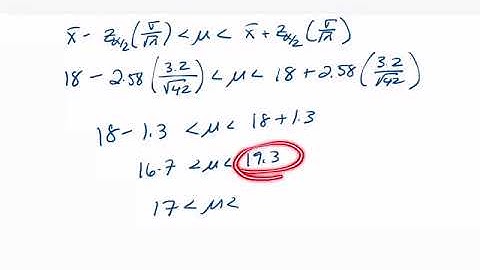 x̄ - z_α/2 (σ/√n) < μ < x̄ + z_α/2 (σ/√n)
18 - 2.58 (3.2/√42) < μ < 18 + 2.58 (3.2/√42)
18 - 1.3 < μ < 18 + 1.3
16.7 < μ < 19.3
17 < μ <